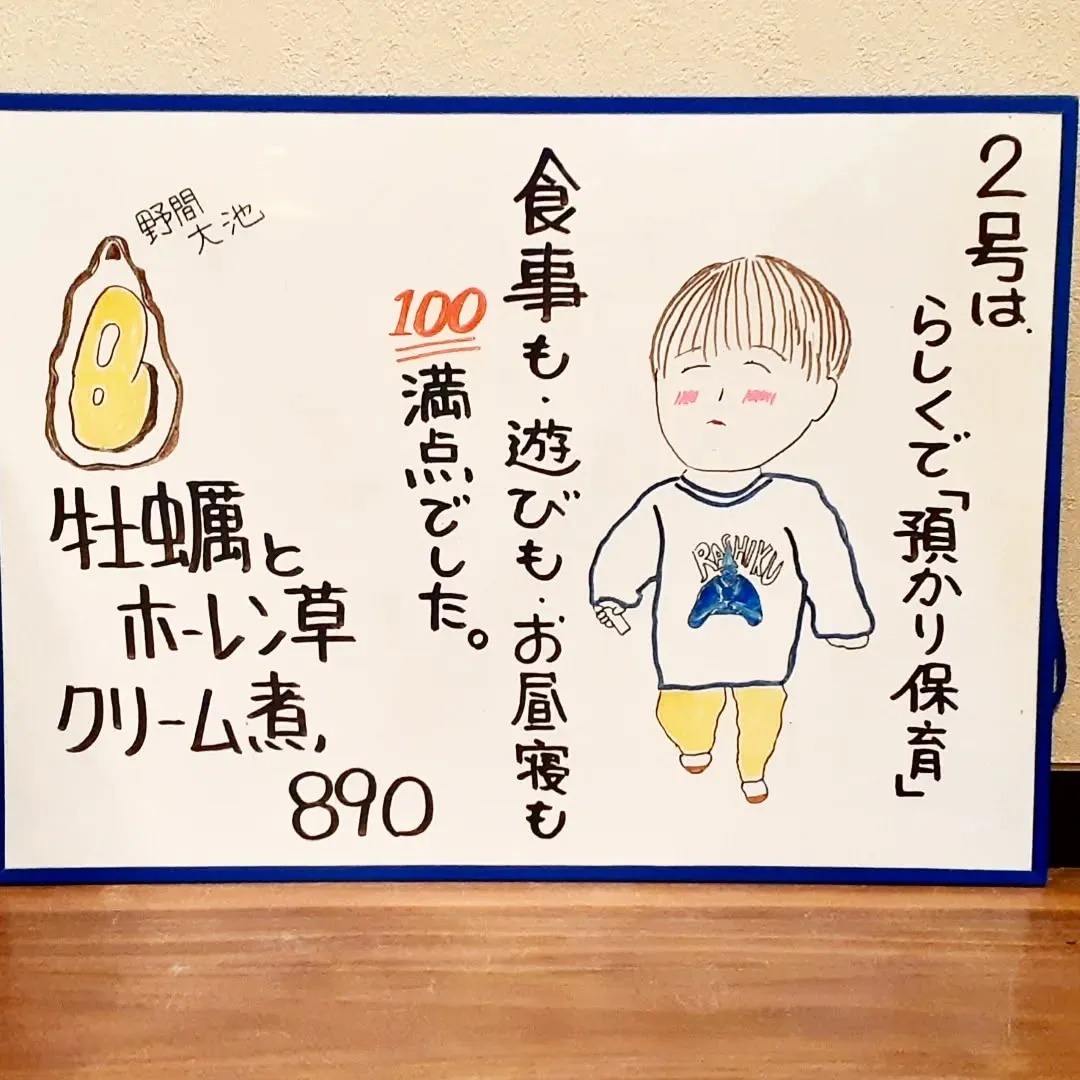 2号は、
らしくで「預かり保育」
RASHIKU
食事も・遊びも・お昼寝も
100満点でした。
野間
大池
牡蠣と
ホーレン草
クリーム煮、
890